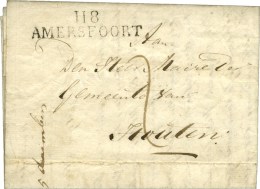 118
AMERSFOORT
Aan
Den Heer Maire der
Gemeente van
Houten
2